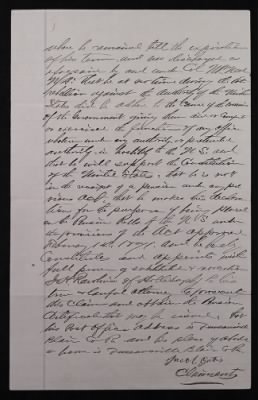 where he remained till the expiration
of his term and was discharged or
by and under Col.
that he at no time during the late
rebellion against the authority of the United
States did he adhere to the cause of the enemies
of the Government giving them aid or comfort
or exercised the functions of any office
whatever under any authority or pretended
authority in hostility to the U.S. and
that he will support the Constitution
of the United States that he is not
in the receipt of a pension under any pre
vious act that he makes this declara
tion for the purpose of being placed
on the Pension Rolls of the U.S. under
the provisions of the Act approved
February 14th 1871, and he hereby
constitutes and appoints with
full power of substitution & revocation
of his
true & lawful attorney to prosecute
his claim and obtain the Pension
Certificate that may be issued, that
his Post Office address is
Blair Co Pa and his place of abode
or home is Blair Co Pa
Claimant